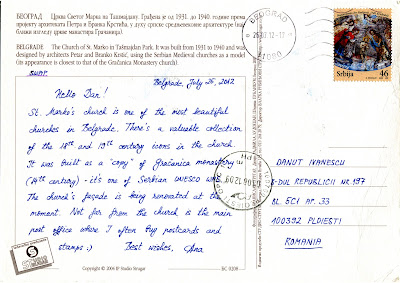 БЕОГРАД Црква Светог Марка на Ташмајдану. Грађена је од 1931. до 1940. године према
пројекту архитеката Петра и Бранка Крстића, у духу српске средњевековне архитектуре (најближи
изгледу цркве манастира Грачанице).
BELGRADE The Church of St. Marko in Tašmajdan Park. It was build from 1931 to 1940 and was
designed by architects Petar and Branko Krstić using the Serbian Medieval churches as a model
(its appearance is closest to that of the Gračanica Monastery church).
Belgrade, July 25, 2012
Hello Dan!
St. Marko's church is one of the most beautiful
churches in Belgrade. There's a valuable collection
of the 18th and 19th century icons in the church.
It was built as a "copy" of Gračanica monastery
(14th century) - it's one of Serbian UNESCO WHS.
The church's façade is being renovated at the
moment. Not far from the church is the main
post office where I often buy postcards and
stamps :) Best wishes, Ana
Copyright © 2004 Studio Strugar
BC 0208
BEOGRAD
Srbija 46
DANUT IVANESCU
B-DUL REPUBLICII NR. 197
BL. 5C1 AP. 33
100392 PLOIESTI
ROMANIA